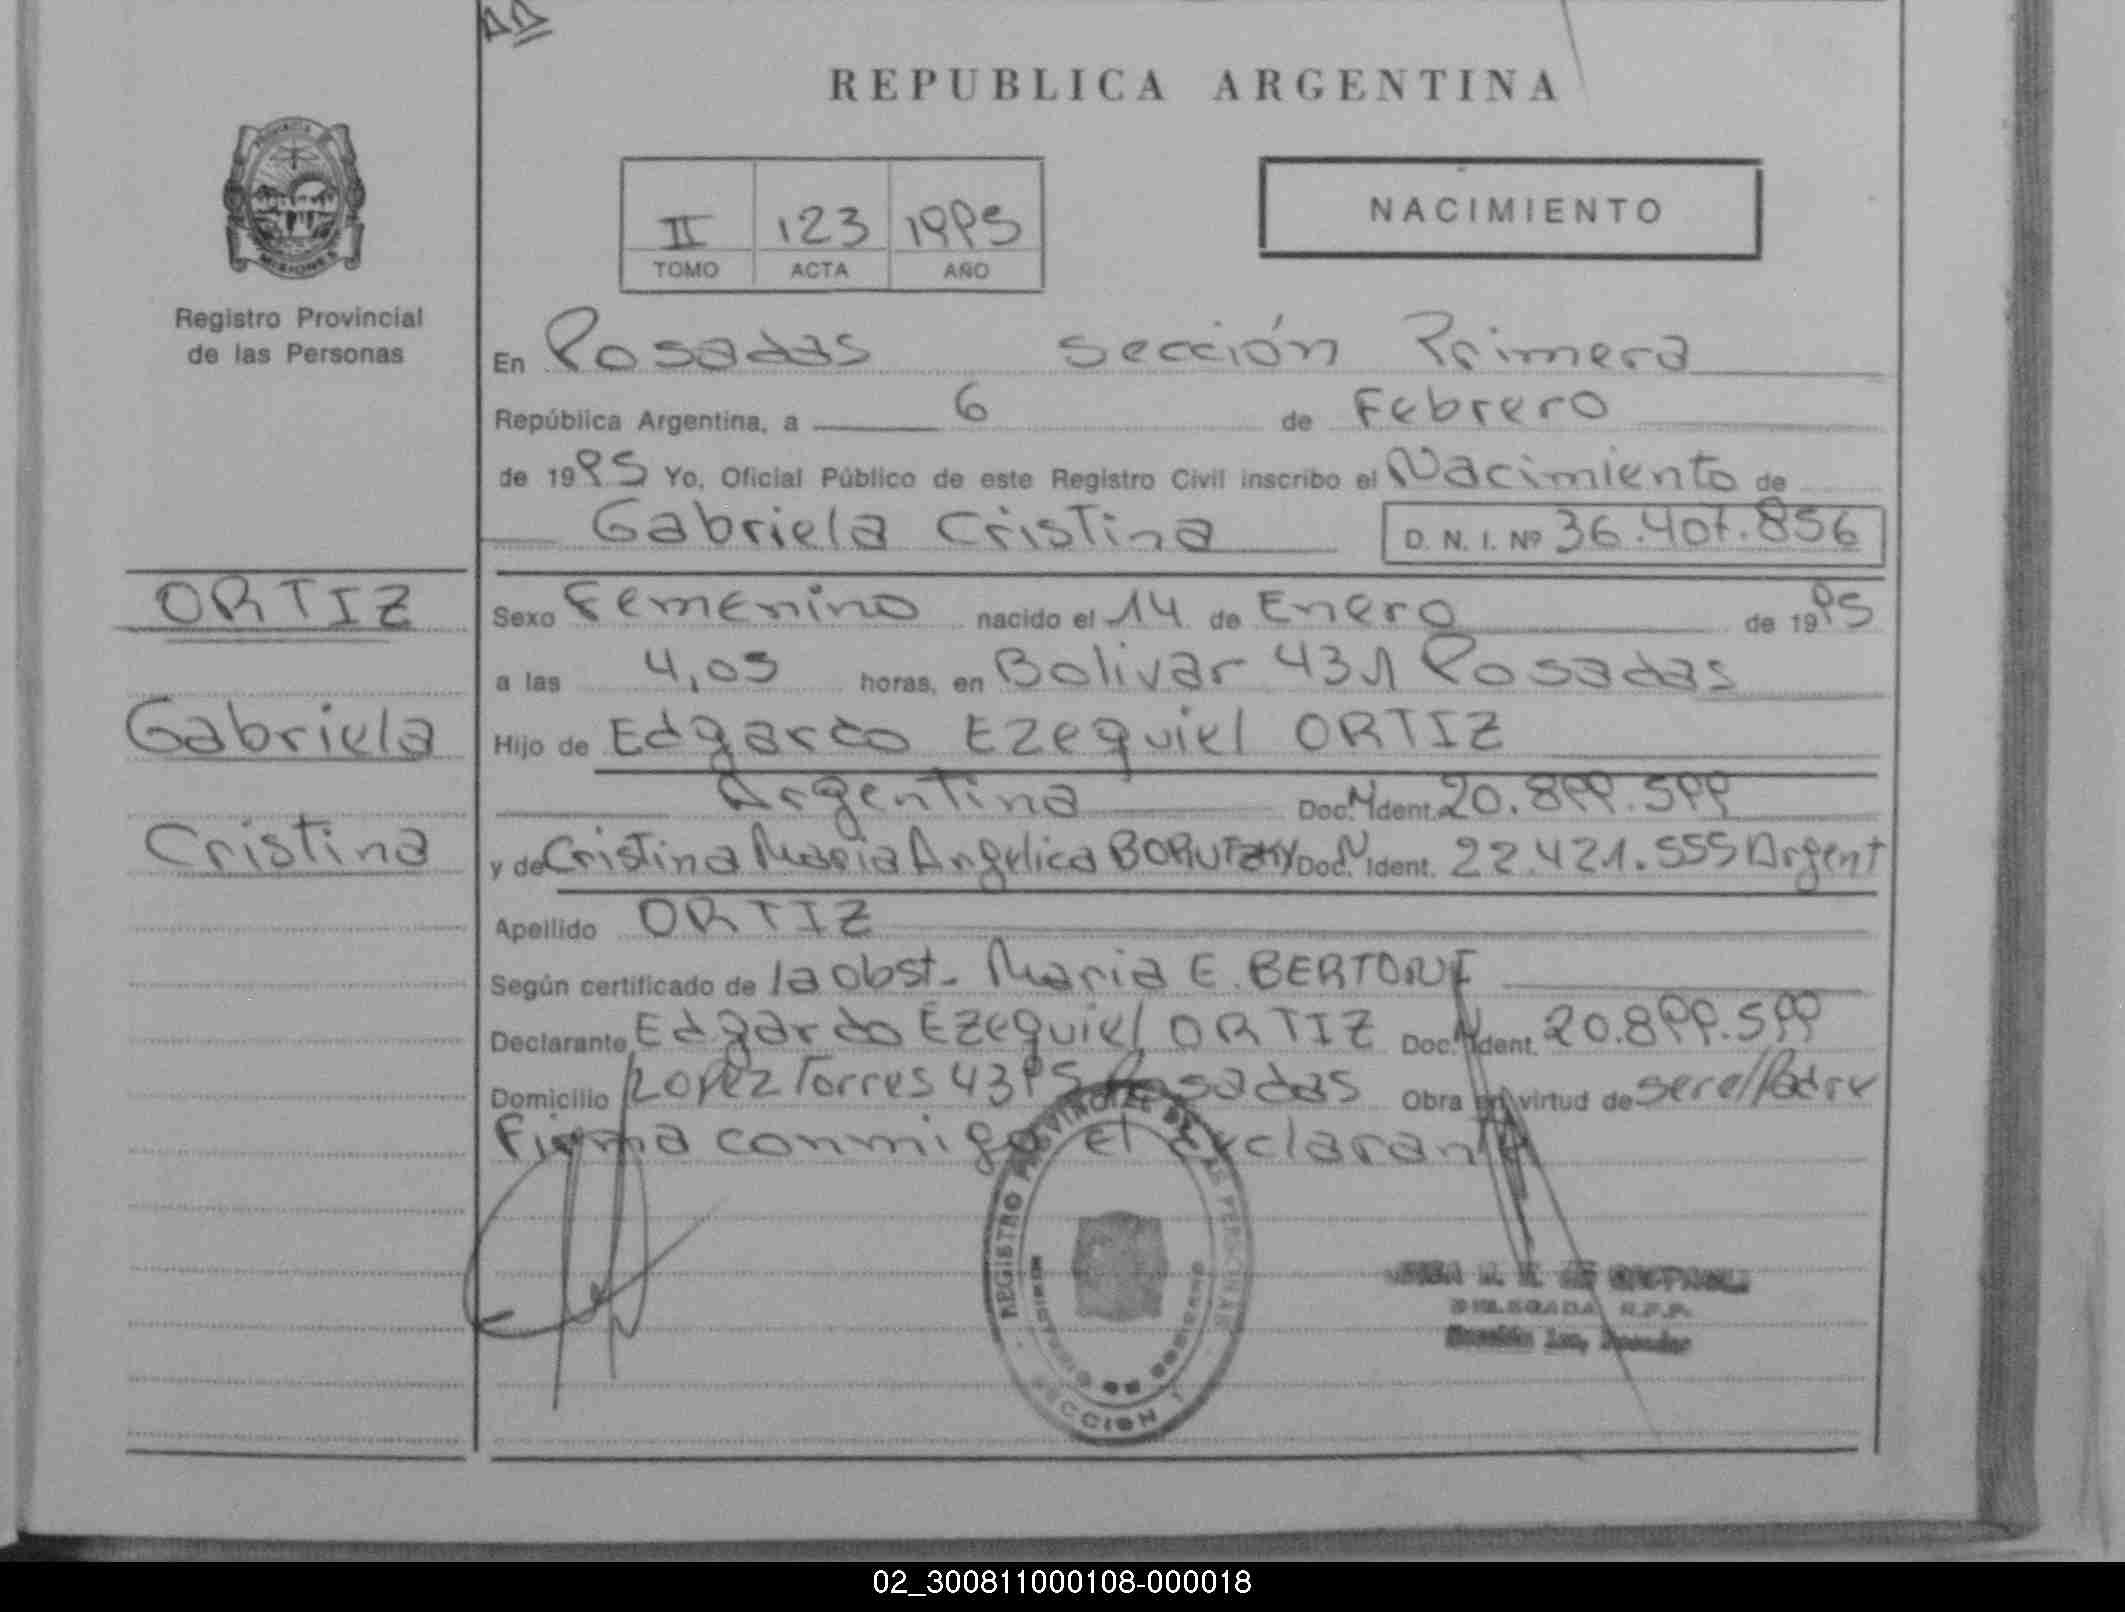 REPUBLICA ARGENTINA
II 123 1995
TOMO ACTA AÑO
NACIMIENTO
MISIONES
Registro Provincial
de las Personas
En Posadas Sección Primera
República Argentina, a 6 de Febrero
de 1995 Yo, Oficial Público de este Registro Civil inscribo el Nacimiento de
Gabriela Cristina D. N. I. Nº 36.407.856
ORTIZ
Gabriela
Cristina
Sexo Femenino nacido el 14 de Enero de 1995
a las 4,05 horas, en Bolivar 431 Posadas
Hijo de Edgardo Ezequiel ORTIZ
Argentina Doc. N Ident. 20.899.599
y de Cristina Maria Angelica BORUTZKY Doc. N Ident. 22.421.555 Argent
Apellido ORTIZ
Según certificado de la obst. Maria E. BERTONI
Declarante Edgardo Ezequiel ORTIZ Doc. N Ident. 20.899.599
Domicilio Lopez Torres 4395 Posadas Obra en virtud de ser el Padre
Firma conmigo el declarante
REGISTRO PROVINCIAL DE LAS PERSONAS
SECCION 1
DELEGADA R.P.P.
Sección 1ra, Posadas
02_300811000108-000018